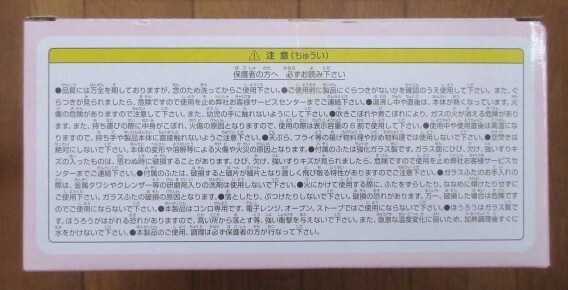 ⚠ 注意(ちゅうい)
保護者の方へ 必ずお読み下さい
●品質には万全を期しておりますが、念のため洗ってからご使用下さい。●ご使用前に製品にぐらつきがないかを確認のうえ使用して下さい。また、ぐ
らつきが見られましたら、危険ですので使用を止め弊社お客様サービスセンターまでご連絡下さい。●湯沸し中や直後は、本体が熱くなっています。火
傷の危険がありますので注意して下さい。また、幼児の手に触れないようにして下さい。●吹きこぼれや煮こぼれにより、ガスの火が消える危険があり
ます。また、持ち運びの際に中身がこぼれ、火傷の原因となりますので、使用の際は表示容量の6割で使用して下さい。●使用中や使用直後は高温にな
りますので、持ち手や製品本体に直接触れないようご注意下さい。●天ぷら、フライ等の揚げ物料理や炒め物料理では使用しないで下さい。●空焚きは
絶対にしないで下さい。本体の変形や溶融等による火傷や火災の原因となります。●付属のふたは強化ガラス製です。ガラス面にひび、欠け、強いすりキ
ズの入ったものは、思わぬ時に破損することがあります。ひび、欠け、強いすりキズが見られましたら、危険ですので使用を止め弊社お客様サービスセン
ターまでご連絡下さい。●付属のふたは、破損すると破片が細片となり激しく飛び散る特性がありますのでご注意下さい。●ガラスのふたのお手入れ
の際は、金属タワシやクレンザー等の研磨剤入りの洗剤は使用しないで下さい。●火にかけて使用する際に、ふたをずらしたり、ななめに傾けたりせずに
ご使用下さい。ガラスふたの破損の原因となります。●落としたり、ぶつけたりしないで下さい。破損の恐れがあります。万一、破損した場合は危険です
のでご使用にならないで下さい。●本製品はコンロ専用です。電子レンジ、オーブン、ストーブではご使用にならないで下さい。●ほうろうはガラス質で
す。ほうろうがはがれる恐れがありますので、高い所から落とす等、強い衝撃を与えないで下さい。また、急激な温度変化に弱いため、加熱調理後すぐに
水をかけないで下さい。●本製品のご使用、調理は必ず保護者の方が行なって下さい。